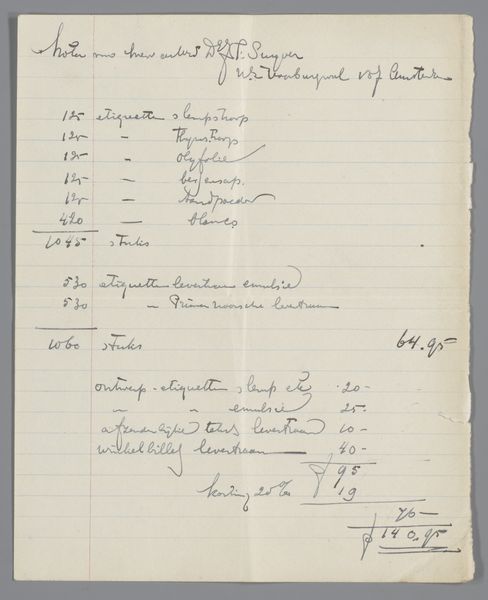 Dr J. P. Suyver
N.Z. Voorburgwal Amsterdam
125 etiquetten slempstroop
125 — Thijmstroop
125 — olyfolie
125 — bessensap.
125 — tandpoeder
420 — blanco
1045 stuks
530 etiquetten levertraan emulsie
530 " Prima noorsche levertraan
1060 stuks 64.95
ontwerp-etiquetten slemp etc 20-
" " emulsie 25.
afzonderlijke tekst levertraan 10-
winkelbillet levertraan — 40-
ƒ 95
korting 20% 19
76—
ƒ 140.95